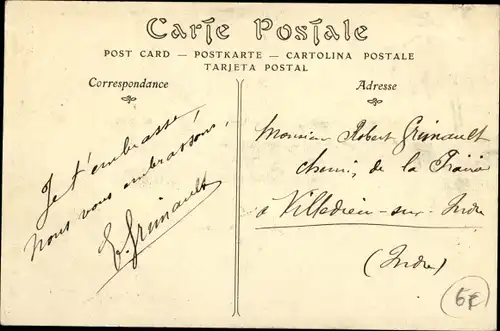 Carte Postale
POST CARD — POSTKARTE — CARTOLINA POSTALE
TARJETA POSTAL
Correspondance
Je t'embrasse,
Nous vous embrassons,
E. Grimault
Adresse
Monsieur Robert Grimault
chemin de la Prairie
à Villedieu-sur-Indre
(Indre)
6€